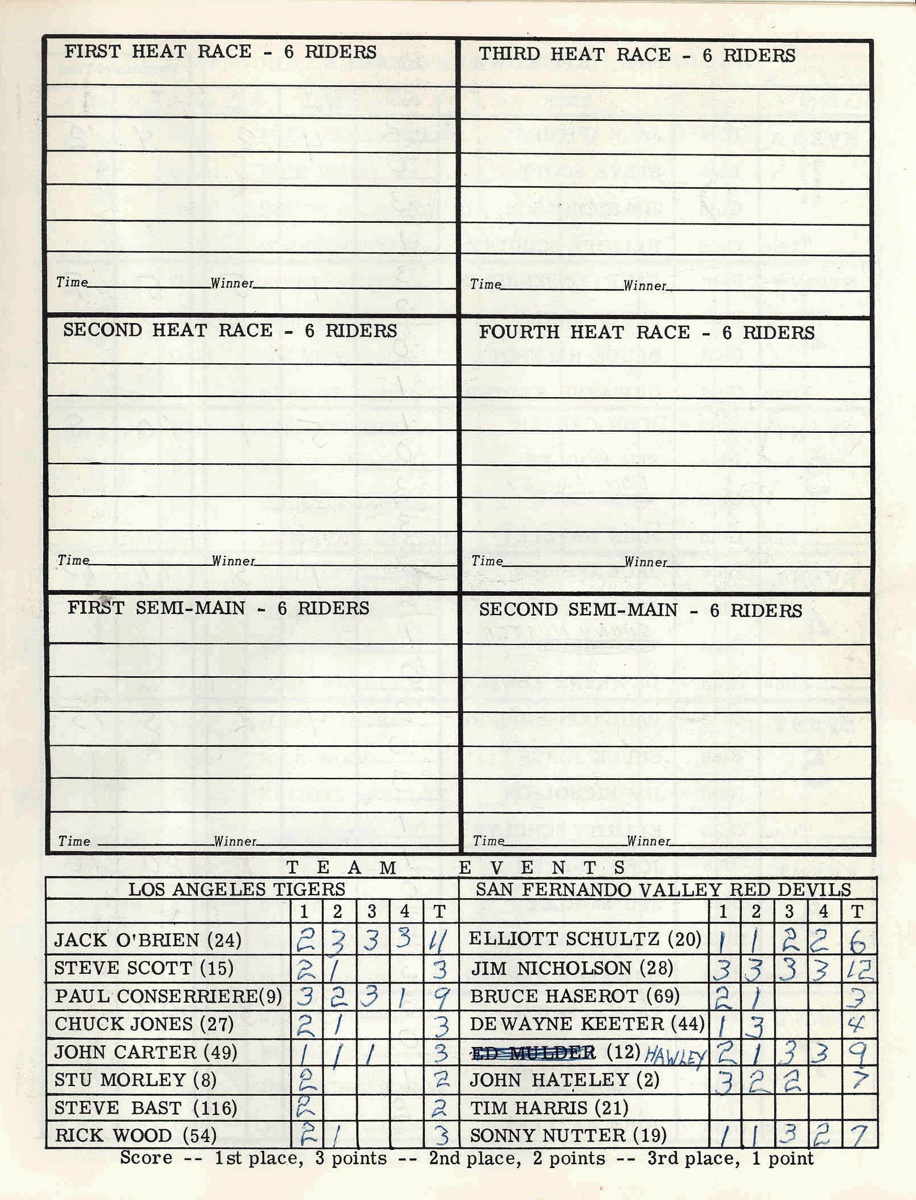 FIRST HEAT RACE - 6 RIDERS
Time Winner
THIRD HEAT RACE - 6 RIDERS
Time Winner
SECOND HEAT RACE - 6 RIDERS
Time Winner
FOURTH HEAT RACE - 6 RIDERS
Time Winner
FIRST SEMI-MAIN - 6 RIDERS
Time Winner
SECOND SEMI-MAIN - 6 RIDERS
Time Winner
TEAM EVENTS
LOS ANGELES TIGERS SAN FERNANDO VALLEY RED DEVILS
1 2 3 4 T 1 2 3 4 T
JACK O'BRIEN (24) 2 3 3 3 11 ELLIOTT SCHULTZ (20) 1 1 2 2 6
STEVE SCOTT (15) 2 1 3 JIM NICHOLSON (28) 3 3 3 3 12
PAUL CONSERRIERE(9) 3 2 3 1 9 BRUCE HASEROT (69) 2 1 3
CHUCK JONES (27) 2 1 3 DEWAYNE KEETER (44) 1 3 4
JOHN CARTER (49) 1 1 1 3 ED MULDER (12) HAWLEY 2 1 3 3 9
STU MORLEY (8) 2 2 JOHN HATELEY (2) 3 2 2 7
STEVE BAST (116) 2 2 TIM HARRIS (21)
RICK WOOD (54) 2 1 3 SONNY NUTTER (19) 1 1 3 2 7
Score -- 1st place, 3 points -- 2nd place, 2 points -- 3rd place, 1 point